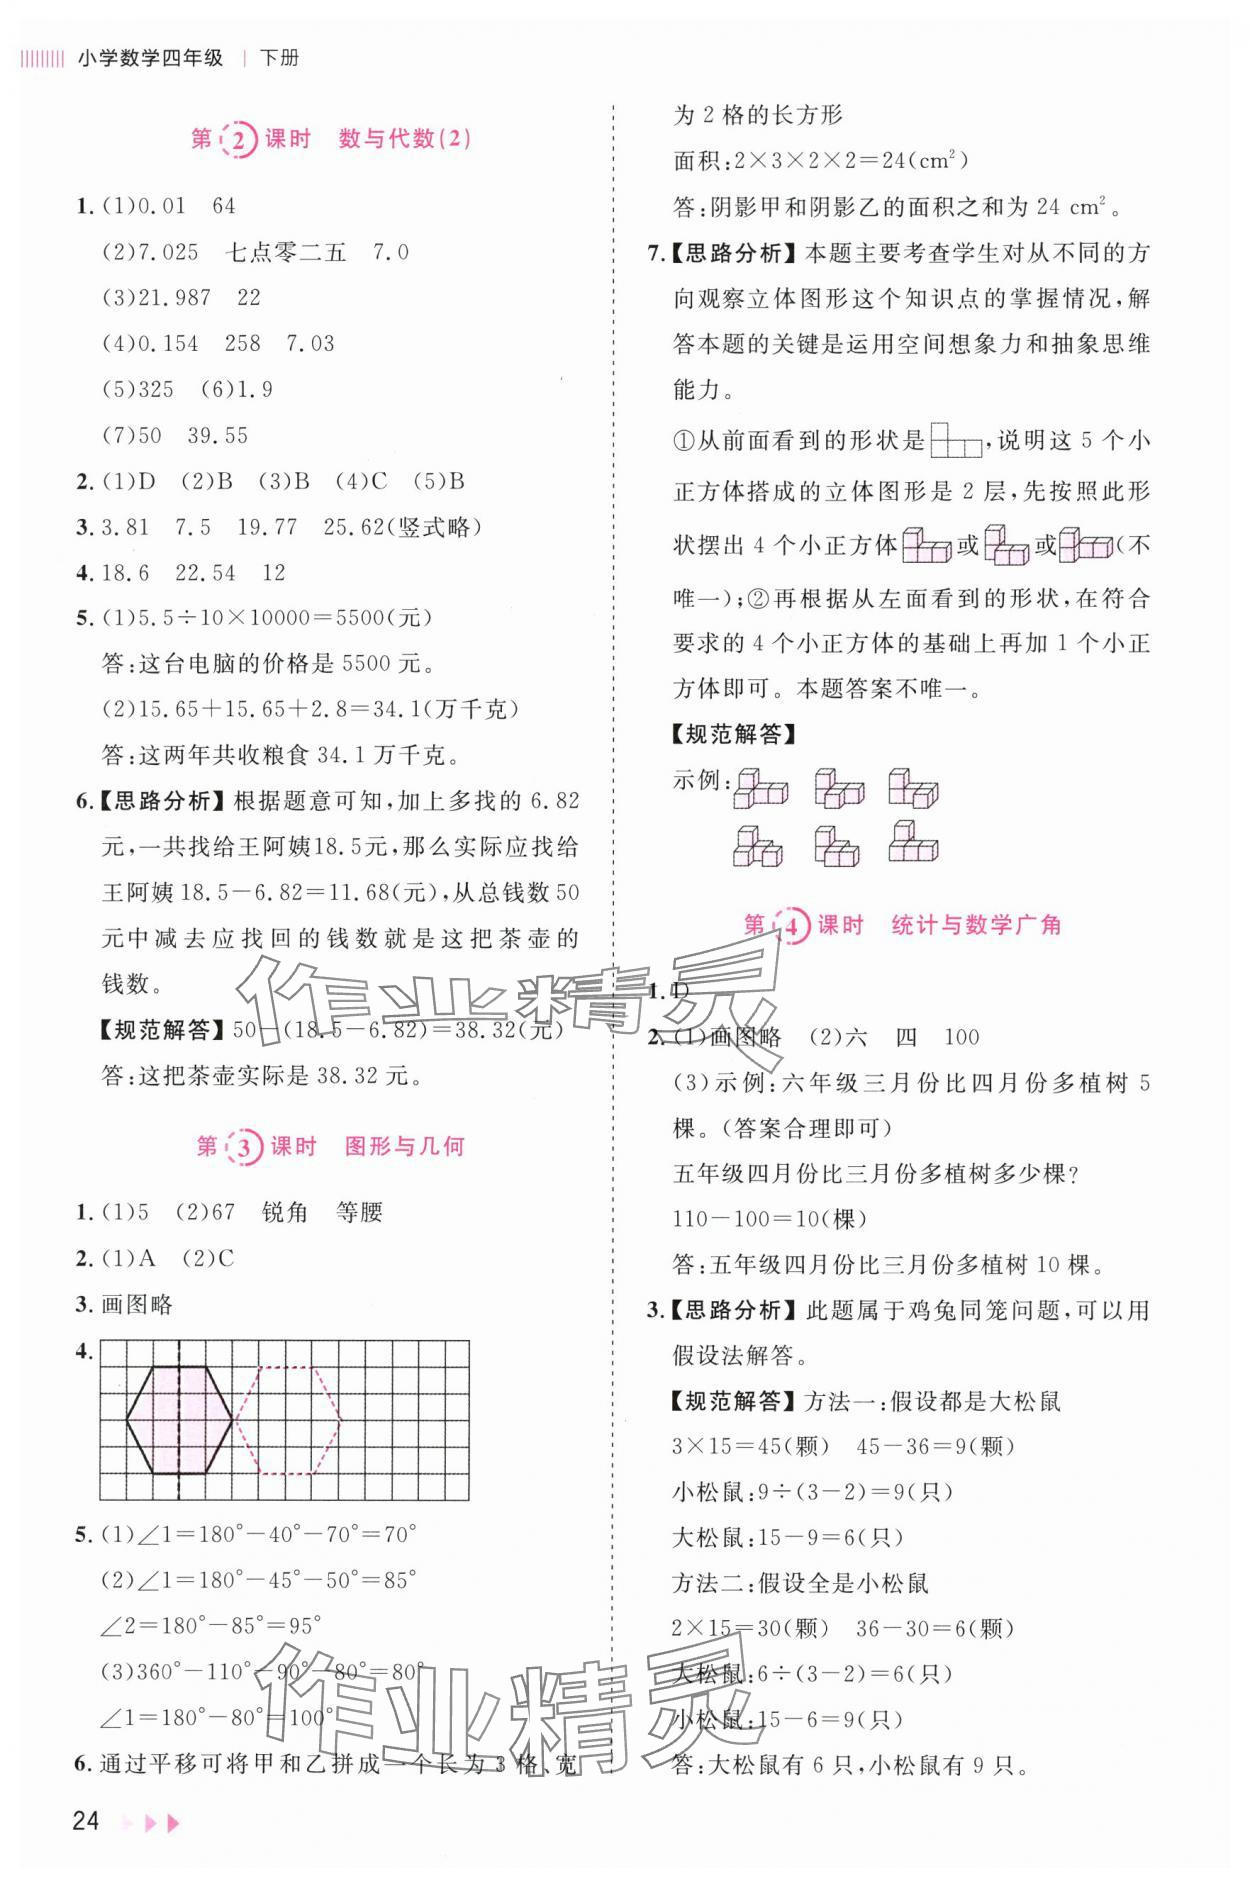 小学数学四年级 | 下册
第2课时 数与代数(2)
1.(1)0.01 64
(2)7.025 七点零二五 7.0
(3)21.987 22
(4)0.154 258 7.03
(5)325 (6)1.9
(7)50 39.55
2.(1)D (2)B (3)B (4)C (5)B
3.3.81 7.5 19.77 25.62(竖式略)
4.18.6 22.54 12
5.(1)5.5÷10×10000=5500(元)
答:这台电脑的价格是5500元。
(2)15.65+15.65+2.8=34.1(万千克)
答:这两年共收粮食34.1万千克。
6.【思路分析】根据题意可知,加上多找的6.82
元,一共找给王阿姨18.5元,那么实际应找给
王阿姨18.5-6.82=11.68(元),从总钱数50
元中减去应找回的钱数就是这把茶壶的
钱数。
【规范解答】50-(18.5-6.82)=38.32(元)
答:这把茶壶实际是38.32元。
第3课时 图形与几何
1.(1)5 (2)67 锐角 等腰
2.(1)A (2)C
3.画图略
4.
5.(1)∠1=180°-40°-70°=70°
(2)∠1=180°-45°-50°=85°
∠2=180°-85°=95°
(3)360°-110°-90°-80°=80°
∠1=180°-80°=100°
6.通过平移可将甲和乙拼成一个长为3格、宽
为2格的长方形
面积:2×3×2×2=24(cm²)
答:阴影甲和阴影乙的面积之和为24 cm²。
7.【思路分析】本题主要考查学生对从不同的方
向观察立体图形这个知识点的掌握情况,解
答本题的关键是运用空间想象力和抽象思维
能力。
①从前面看到的形状是,说明这5个小
正方体搭成的立体图形是2层,先按照此形
状摆出4个小正方体或或(不
唯一);②再根据从左面看到的形状,在符合
要求的4个小正方体的基础上再加1个小正
方体即可。本题答案不唯一。
【规范解答】
示例:
第4课时 统计与数学广角
1.D
2.(1)画图略 (2)六 四 100
(3)示例:六年级三月份比四月份多植树5
棵。(答案合理即可)
五年级四月份比三月份多植树多少棵?
110-100=10(棵)
答:五年级四月份比三月份多植树10棵。
3.【思路分析】此题属于鸡兔同笼问题,可以用
假设法解答。
【规范解答】方法一:假设都是大松鼠
3×15=45(颗) 45-36=9(颗)
小松鼠:9÷(3-2)=9(只)
大松鼠:15-9=6(只)
方法二:假设全是小松鼠
2×15=30(颗) 36-30=6(颗)
大松鼠:6÷(3-2)=6(只)
小松鼠:15-6=9(只)
答:大松鼠有6只,小松鼠有9只。
24
作业精灵
作业精灵